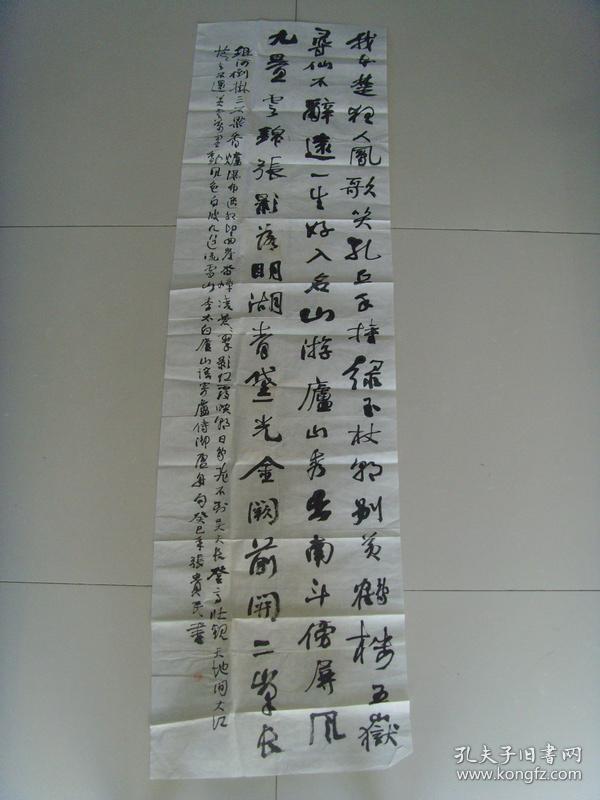 我本楚狂人鳳歌笑孔丘手持綠玉杖朝別黃鶴樓五嶽
尋仙不辭遠一生好入名山游廬山秀出南斗傍屏風
九疊雲錦張影落明湖青黛光金闕前開二峯長
銀河倒掛三石梁香爐瀑布遙相望迴崖沓嶂凌蒼蒼翠影紅霞映朝日鳥飛不到吳天長登高壯觀天地間大江
茫茫去不還黃雲萬里動風色白波九道流雪山李太白廬山謠寄盧侍御虛舟句癸巳年張貴民書
孔夫子旧書网
www.kongfz.com